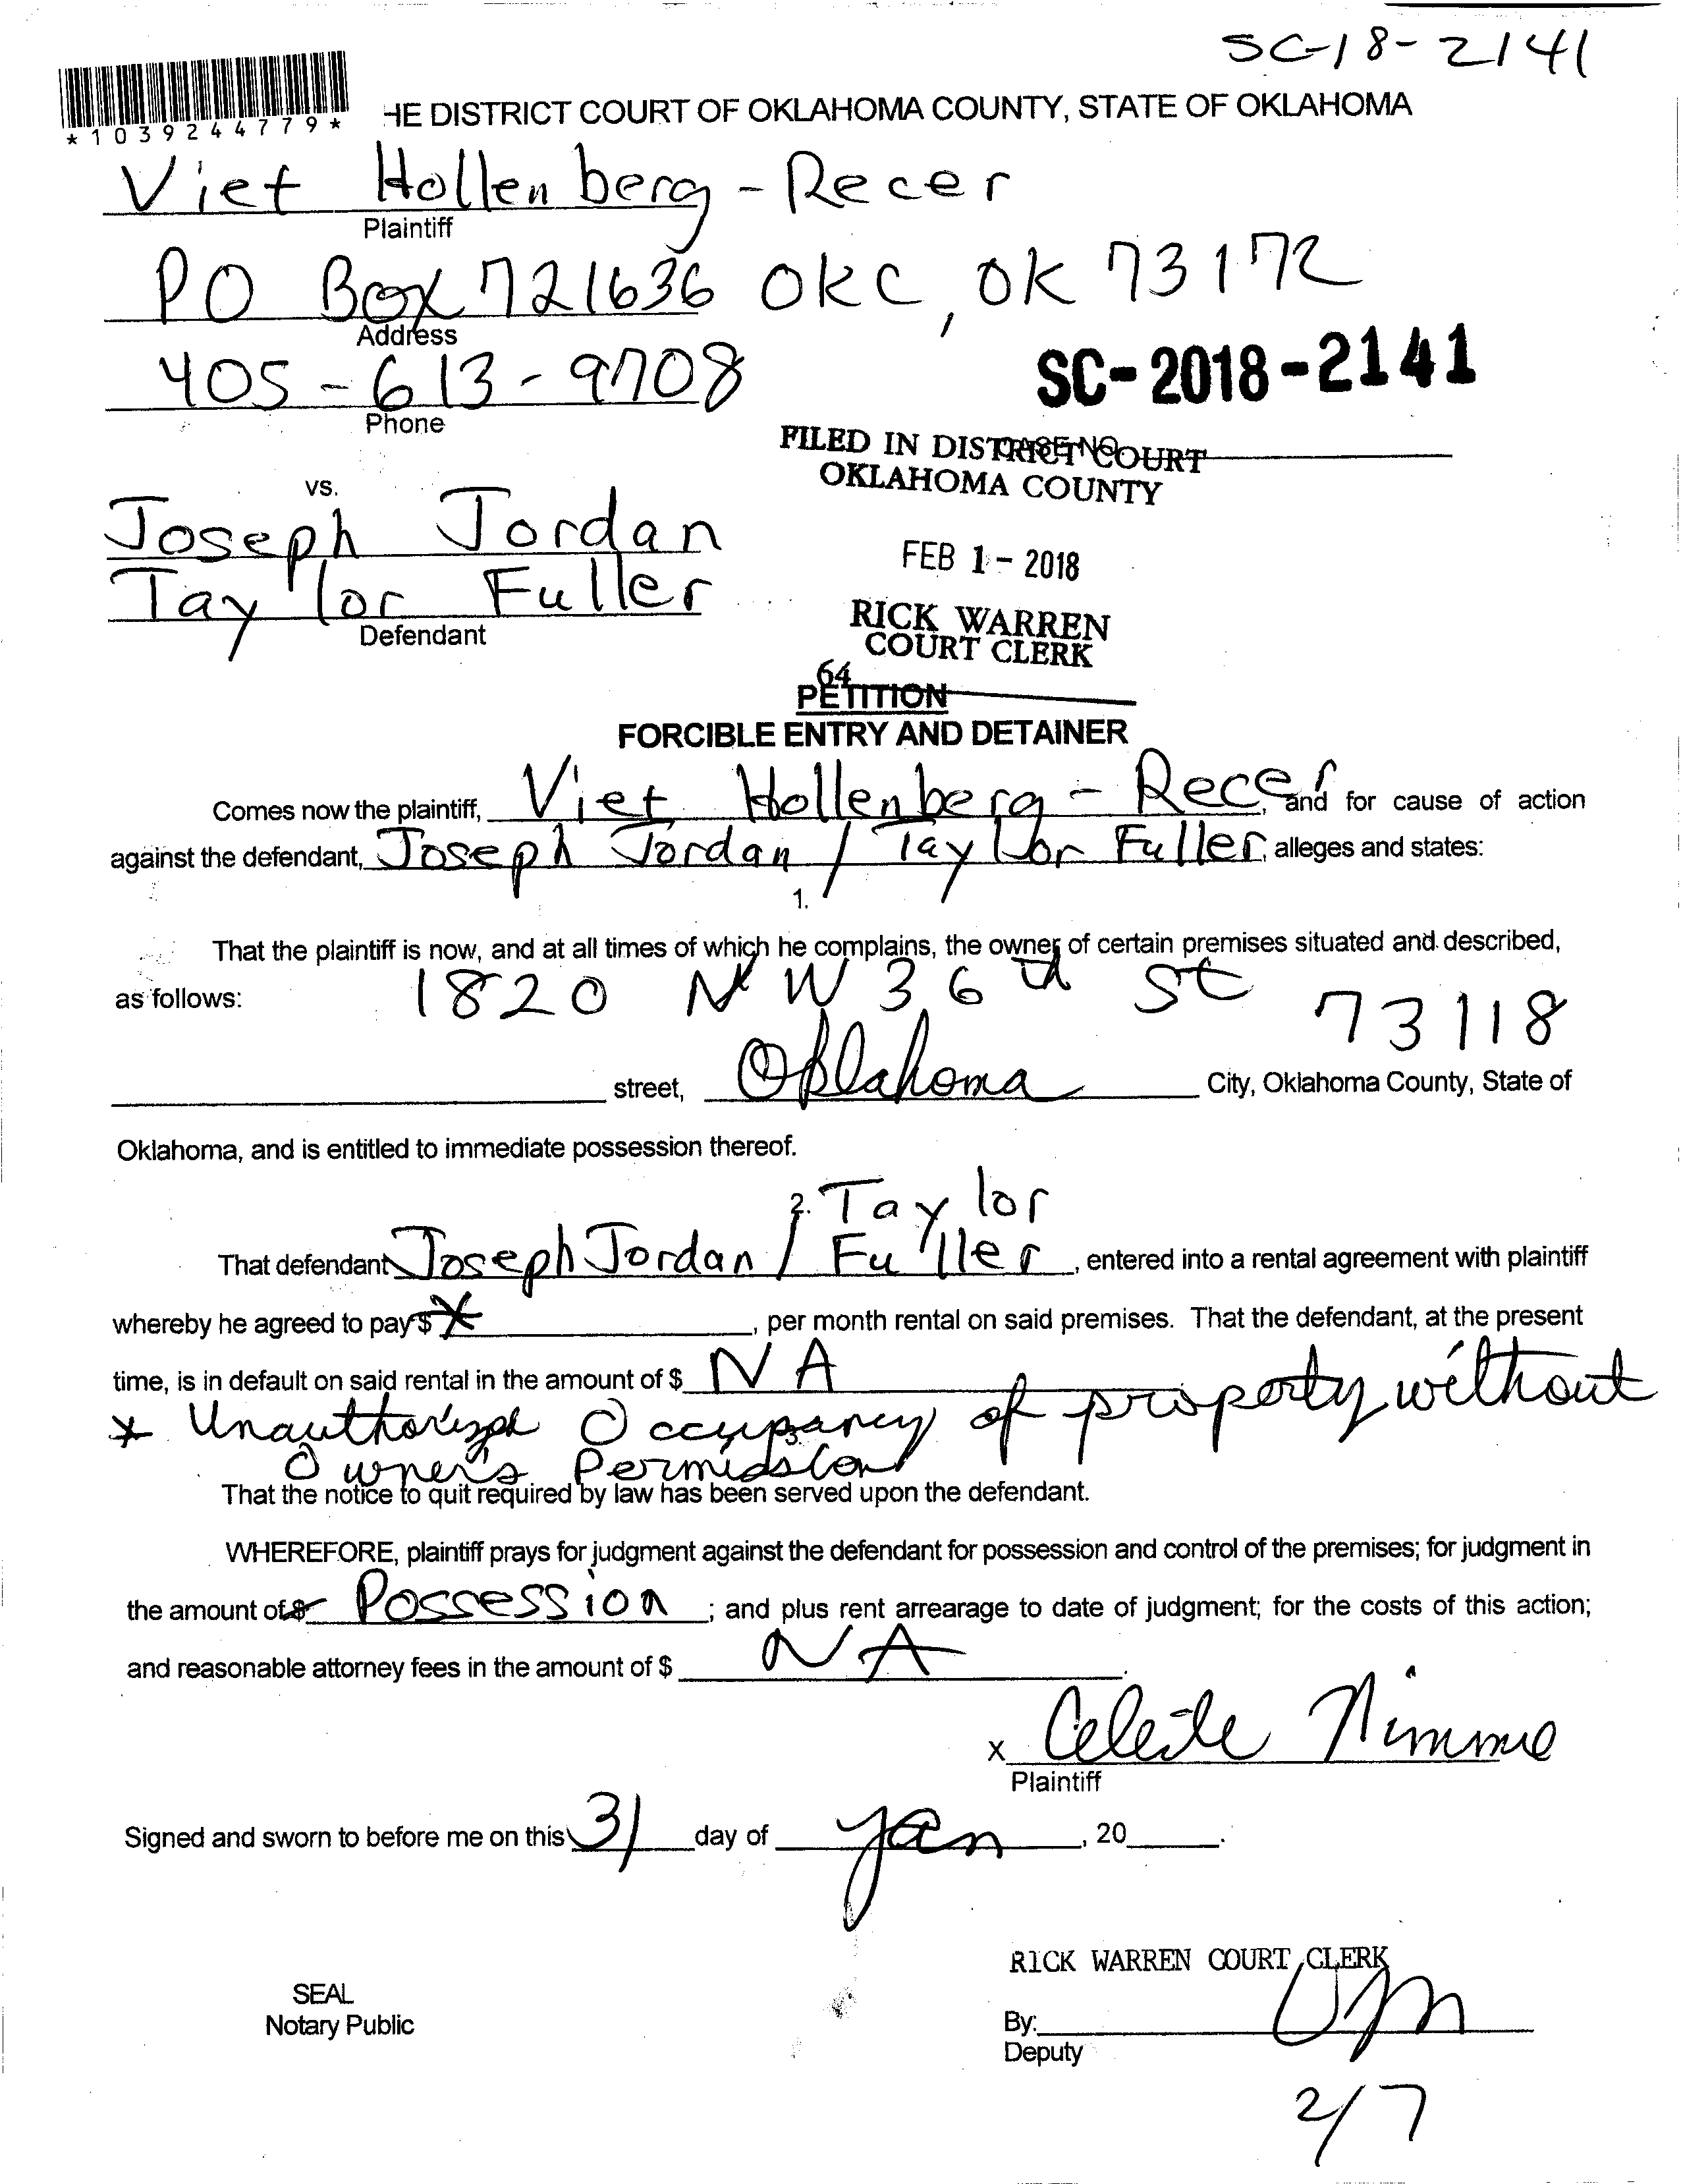 SC-18-2141
*1039244779*
HE DISTRICT COURT OF OKLAHOMA COUNTY, STATE OF OKLAHOMA
Viet Hollenberg-Recer
Plaintiff
PO Box 721636 OKC, OK 73172
Address
405-613-9708
SC-2018-2141
Phone
CASE NO.
FILED IN DISTRICT COURT
OKLAHOMA COUNTY
vs.
Joseph Jordan
FEB 1 - 2018
Taylor Fuller
Defendant
RICK WARREN
COURT CLERK
64
PETITION
FORCIBLE ENTRY AND DETAINER
Comes now the plaintiff, Viet Hollenberg-Recer, and for cause of action
against the defendant, Joseph Jordan / Taylor Fuller, alleges and states:
1.
That the plaintiff is now, and at all times of which he complains, the owner of certain premises situated and described,
as follows: 1820 NW 36th St 73118
street, Oklahoma City, Oklahoma County, State of
Oklahoma, and is entitled to immediate possession thereof.
2.
That defendant Joseph Jordan / Taylor Fuller, entered into a rental agreement with plaintiff
whereby he agreed to pay $ *, per month rental on said premises. That the defendant, at the present
time, is in default on said rental in the amount of $ NA
* Unauthorized Occupancy of property without
3.
Owner's Permission
That the notice to quit required by law has been served upon the defendant.
WHEREFORE, plaintiff prays for judgment against the defendant for possession and control of the premises; for judgment in
the amount of $ Possession; and plus rent arrearage to date of judgment; for the costs of this action;
and reasonable attorney fees in the amount of $ NA.
x Celeste Nimmo
Plaintiff
Signed and sworn to before me on this 31 day of Jan, 20.
RICK WARREN COURT CLERK
SEAL
Notary Public
By:
Deputy
2/7